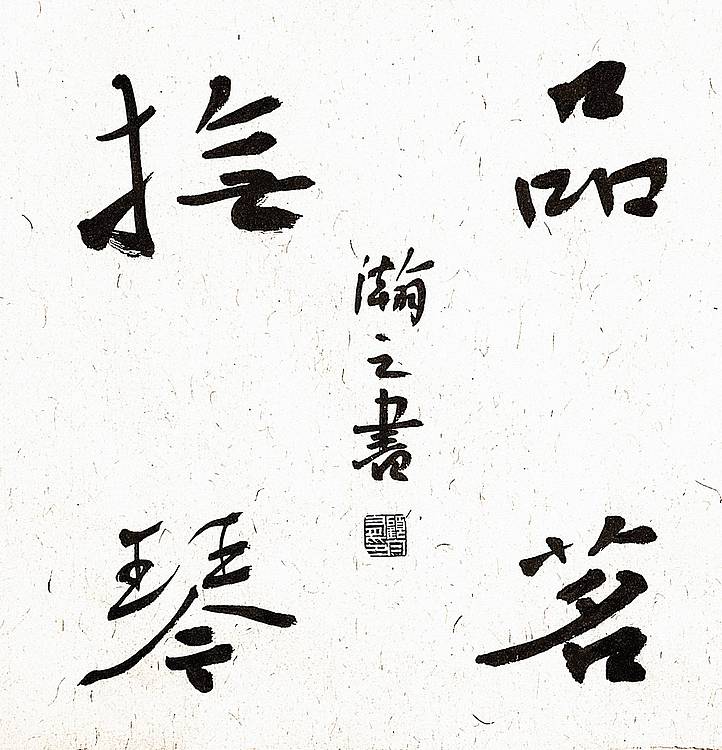 品茗
撫琴
瀚之書